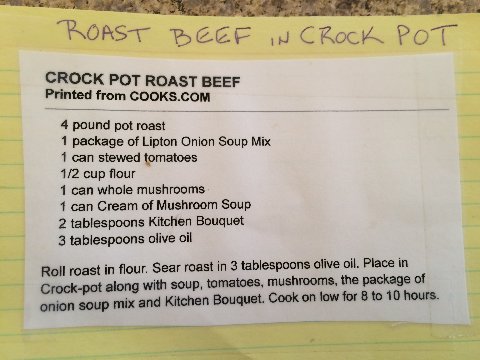 ROAST BEEF IN CROCK POT
CROCK POT ROAST BEEF
Printed from COOKS.COM
4 pound pot roast
1 package of Lipton Onion Soup Mix
1 can stewed tomatoes
1/2 cup flour
1 can whole mushrooms
1 can Cream of Mushroom Soup
2 tablespoons Kitchen Bouquet
3 tablespoons olive oil
Roll roast in flour. Sear roast in 3 tablespoons olive oil. Place in
Crock-pot along with soup, tomatoes, mushrooms, the package of
onion soup mix and Kitchen Bouquet. Cook on low for 8 to 10 hours.